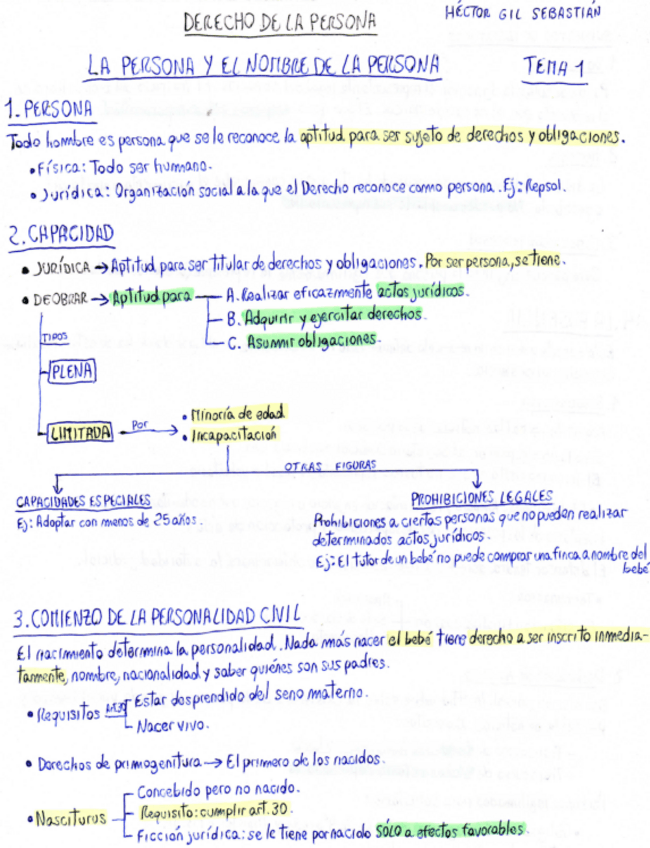 DERECHO DE LA PERSONA
HÉCTOR GIL SEBASTIÁN
LA PERSONA Y EL NOMBRE DE LA PERSONA
TEMA 1
1. PERSONA
Todo hombre es persona que se le reconoce la aptitud para ser sujeto de derechos y obligaciones.
• Física: Todo ser humano.
• Jurídica: Organización social a la que el Derecho reconoce como persona. Ej: Repsol.
2. CAPACIDAD
• JURÍDICA → Aptitud para ser titular de derechos y obligaciones. Por ser persona, se tiene.
• DE OBRAR → Aptitud para
A. Realizar eficazmente actos jurídicos.
B. Adquirir y ejercitar derechos.
C. Asumir obligaciones.
TIPOS
PLENA
LIMITADA Por →
• Minoría de edad
• Incapacitación
OTRAS FIGURAS
CAPACIDADES ESPECIALES
Ej: Adoptar con menos de 25 años.
PROHIBICIONES LEGALES
Prohibiciones a ciertas personas que no pueden realizar
determinados actos jurídicos.
Ej: El tutor de un bebé no puede comprar una finca a nombre del
bebé
3. COMIENZO DE LA PERSONALIDAD CIVIL
El nacimiento determina la personalidad. Nada más nacer el bebé tiene derecho a ser inscrito inmedia-
tamente, nombre, nacionalidad y saber quiénes son sus padres.
• Requisitos Art.30
Estar desprendido del seno materno.
Nacer vivo.
• Derechos de primogenitura → El primero de los nacidos.
• Nasciturus
Concebido pero no nacido.
Requisito: cumplir art. 30.
Ficción jurídica: se le tiene por nacido SÓLO a efectos favorables.